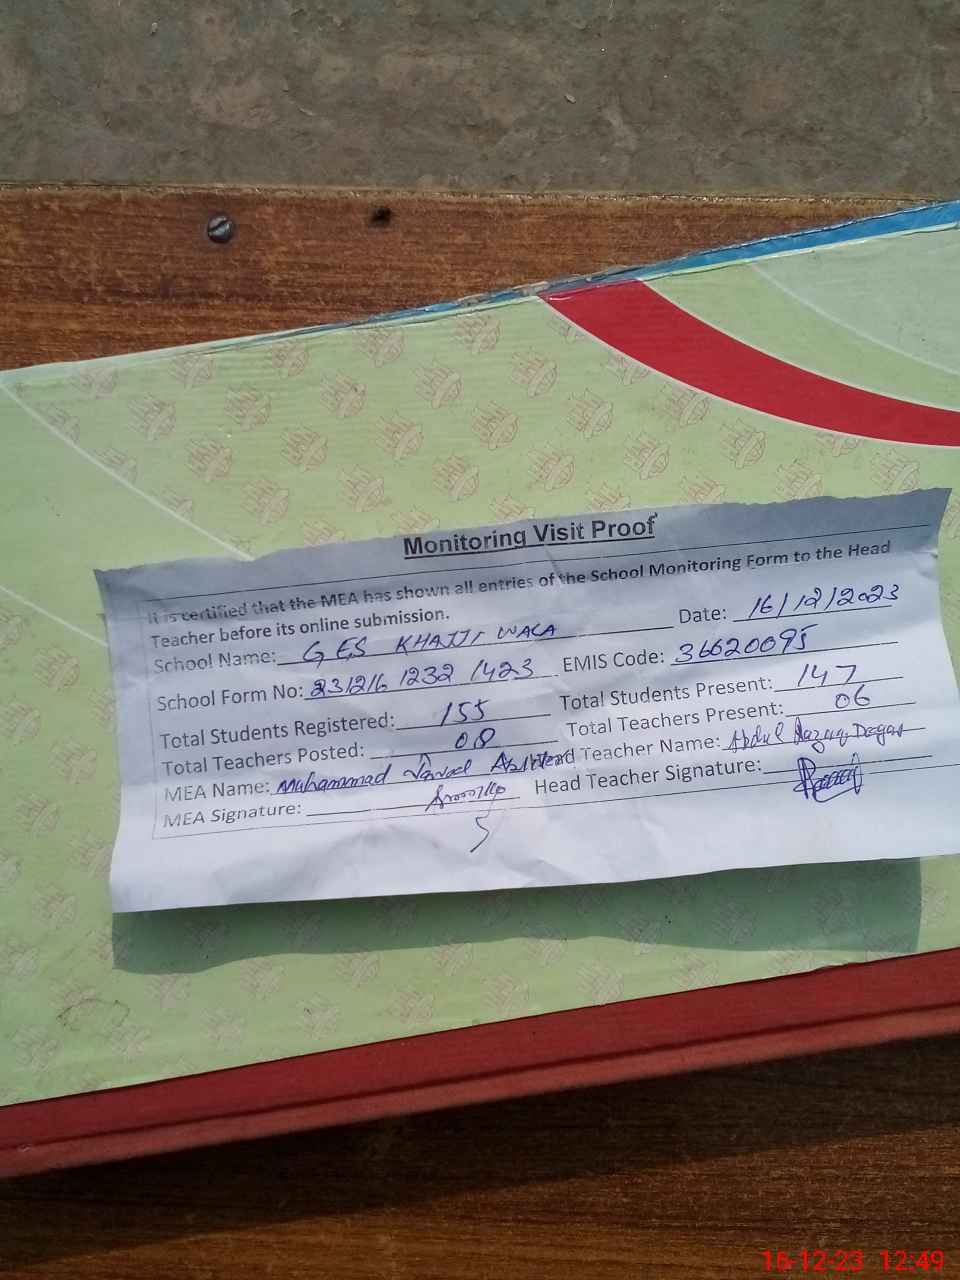 Monitoring Visit Proof
It is certified that the MEA has shown all entries of the School Monitoring Form to the Head
Teacher before its online submission.
School Name: GES KHAJJI WALA Date: 16/12/2023
School Form No: 231216 1232 1423 EMIS Code: 36620095
Total Students Registered: 155 Total Students Present: 147
Total Teachers Posted: 08 Total Teachers Present: 06
MEA Name: Muhammad Javed Head Teacher Name: Abdul
MEA Signature: Head Teacher Signature:
16-12-23 12:49